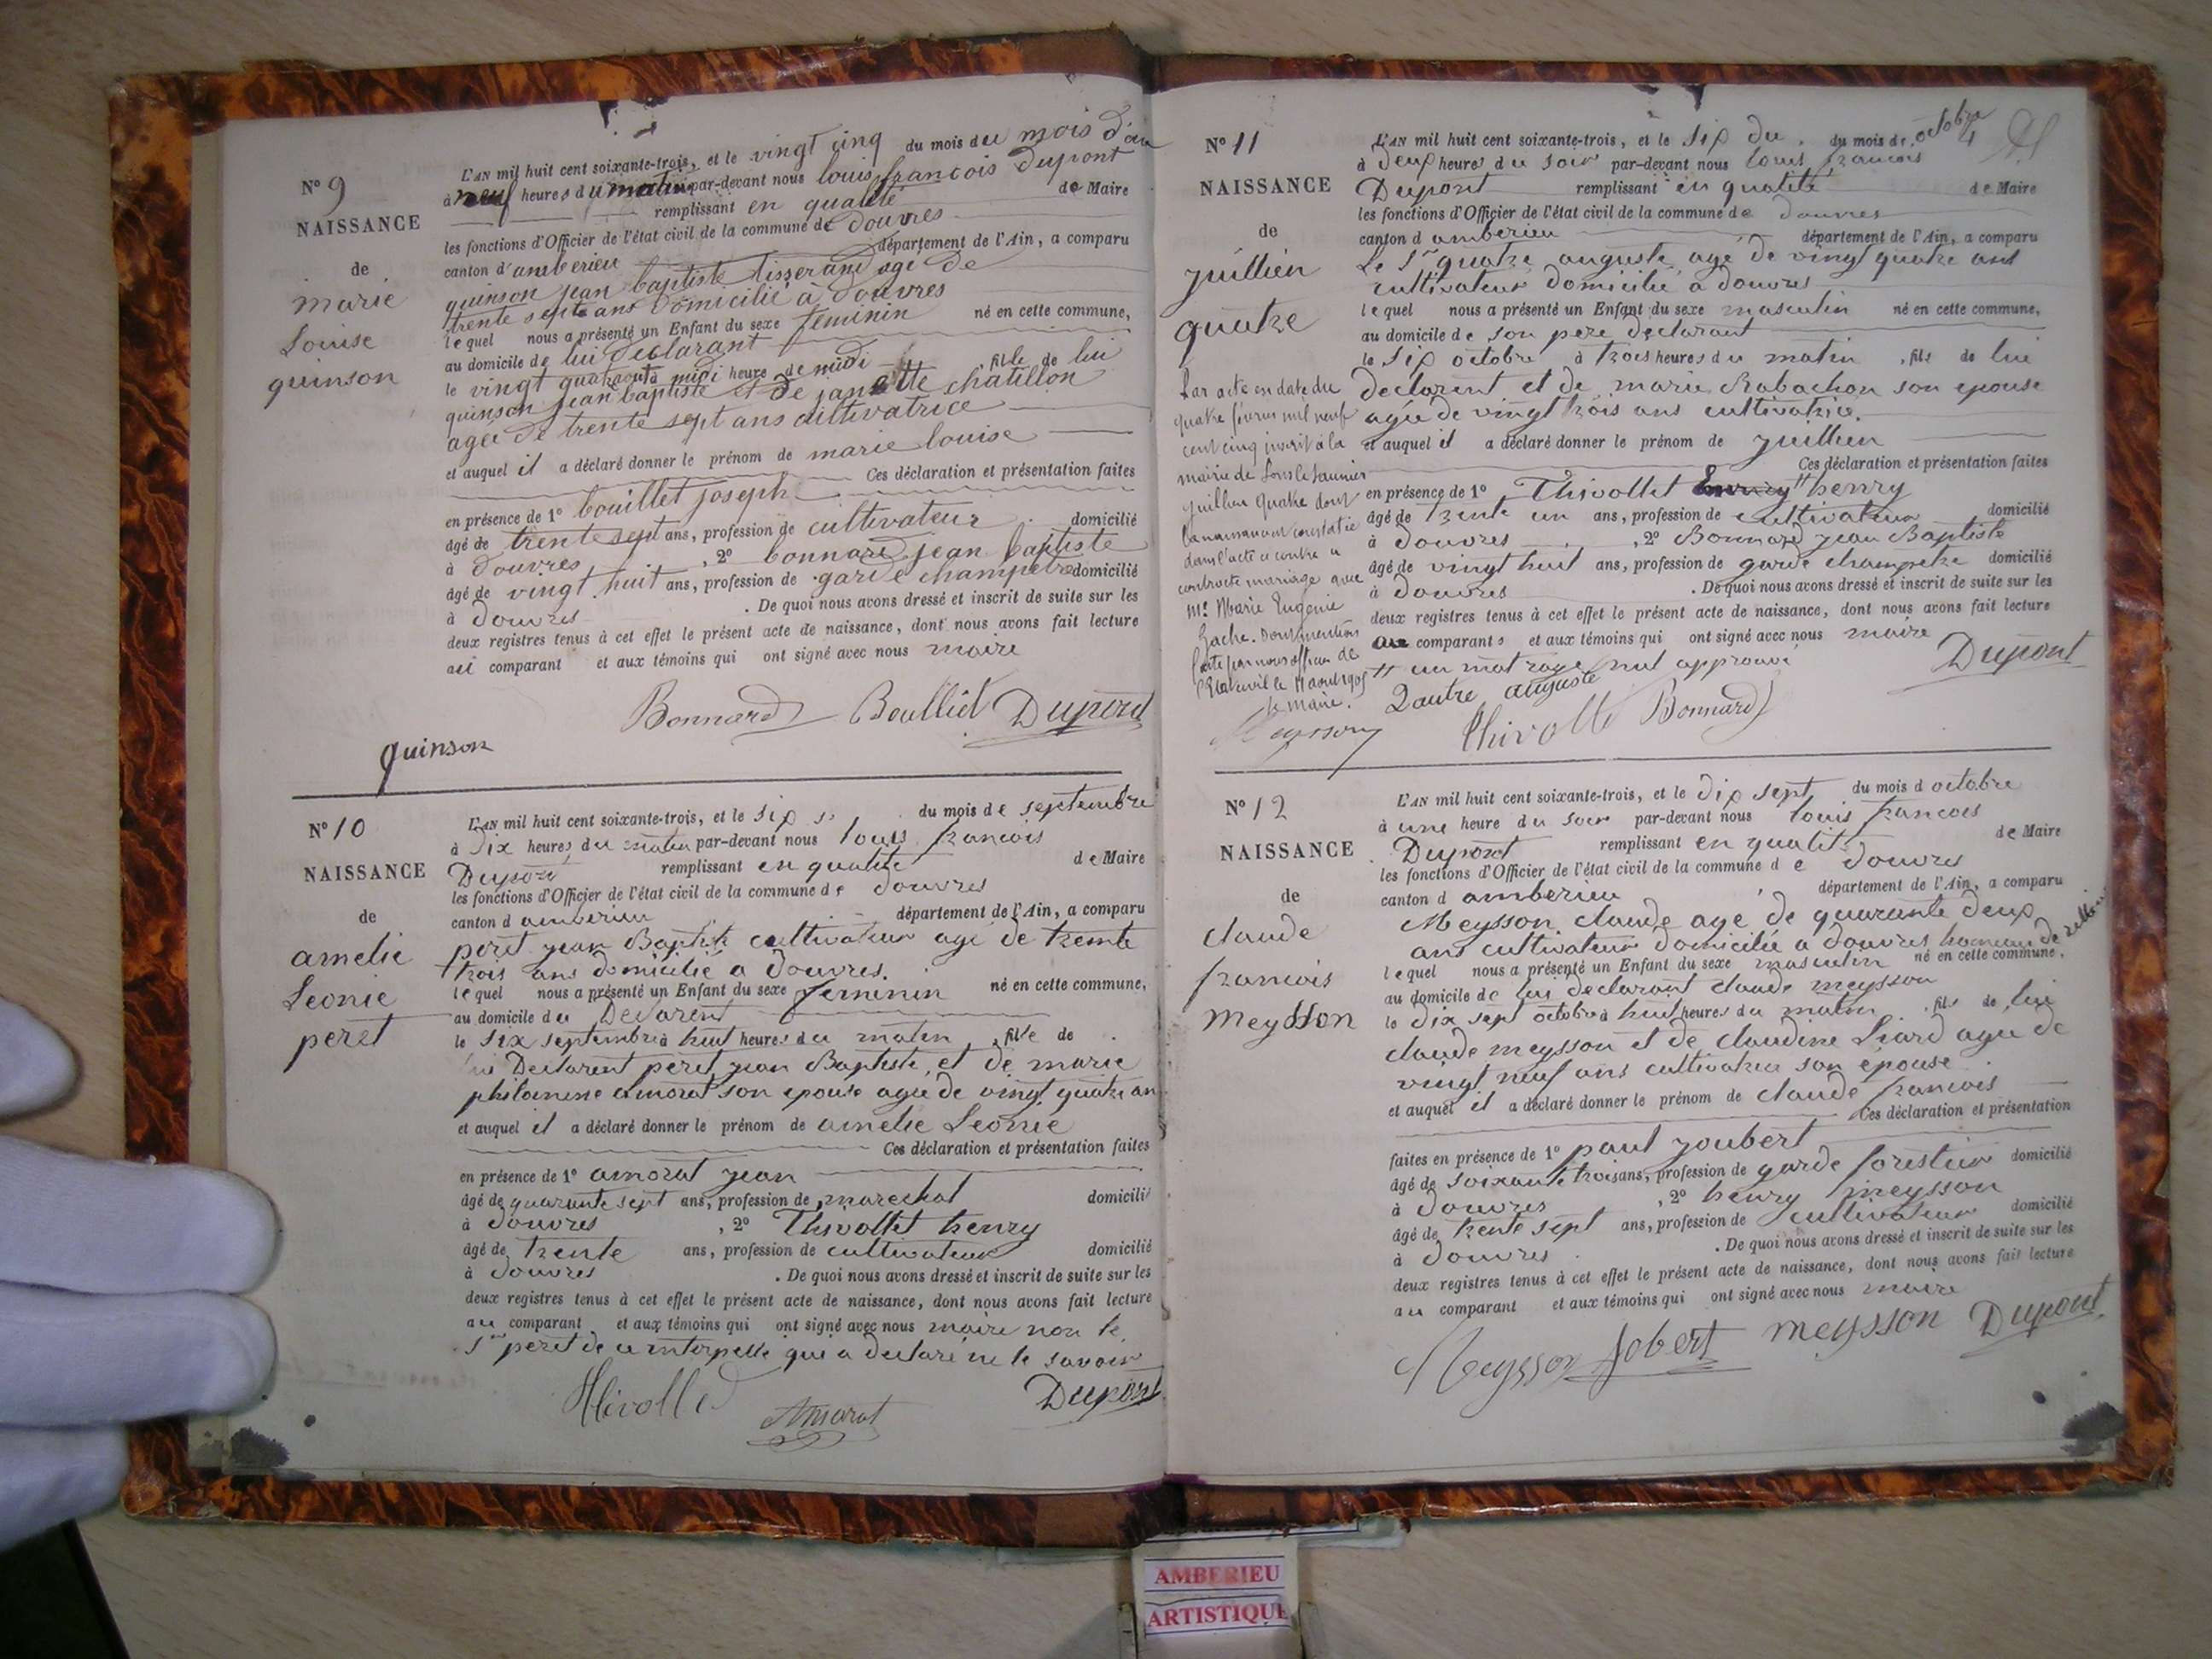 N° 9
NAISSANCE
de
marie
Louise
quinson
L'AN mil huit cent soixante-trois, et le vingt cinq du mois du mois d'aou
à neuf heures du matin par-devant nous louis francois Dupont
remplissant en qualité de Maire
les fonctions d'Officier de l'état civil de la commune de douvres
canton d'amberieu département de l'Ain, a comparu
quinson jean baptiste tisserand agé de
trente sept ans domicilié à douvres
lequel nous a présenté un Enfant du sexe feminin né en cette commune,
au domicile de lui declarant
le vingt quatre aout à midi heure de midi fille de lui
quinson jean baptiste et de janette chatillon
agée de trente sept ans cultivatrice
et auquel il a déclaré donner le prénom de marie louise
Ces déclaration et présentation faites
en présence de 1° bouillet joseph
âgé de trente sept ans, profession de cultivateur domicilié
à douvres, 2° bonnard jean baptiste
âgé de vingt huit ans, profession de garde champetre domicilié
à douvres. De quoi nous avons dressé et inscrit de suite sur les
deux registres tenus à cet effet le présent acte de naissance, dont nous avons fait lecture
au comparant et aux témoins qui ont signé avec nous maire
Bonnard Boulliet Dupont
quinson
N° 10
NAISSANCE
de
amelie
Leonie
peret
L'AN mil huit cent soixante-trois, et le six du mois de septembre
à Dix heures du matin par-devant nous louis francois
Dupont remplissant en qualité de Maire
les fonctions d'Officier de l'état civil de la commune de douvres
canton d amberieu département de l'Ain, a comparu
peret jean Baptiste cultivateur agé de trente
trois ans domicilié a douvres.
lequel nous a présenté un Enfant du sexe feminin né en cette commune,
au domicile du Declarent
le six septembre à huit heures du matin fille de
lui Declarent peret jean Baptiste, et de marie
philomene amorat son epouse agée de vingt quatre an
et auquel il a déclaré donner le prénom de amelie Leonie
Ces déclaration et présentation faites
en présence de 1° amorat jean
âgé de quarante sept ans, profession de marechal domicilié
à douvres, 2° Thivollet henry
âgé de trente ans, profession de cultivateur domicilié
à douvres. De quoi nous avons dressé et inscrit de suite sur les
deux registres tenus à cet effet le présent acte de naissance, dont nous avons fait lecture
au comparant et aux témoins qui ont signé avec nous maire non le
Sr peret de ce interpellé qui a declaré ne le savoir
Thivollet Amorat Dupont
N° 11
NAISSANCE
de
juillien
quatre
Par acte en date du
quatre février mil neuf
cent cinq inscrit à la
mairie de Lons le Saunier
juillien Quatre dont
la naissance est constatée
dans l'acte ci contre a
contracté mariage avec
Me Marie Eugénie
Gache. Dont mention
faite par nous officier de
l'Etat civil le 11 aout 1905
Le Maire.
Meysson
L'AN mil huit cent soixante-trois, et le six du du mois de octobre
à Deux heures du soir par-devant nous louis francois
Dupont remplissant en qualité de Maire
les fonctions d'Officier de l'état civil de la commune de douvres
canton d amberieu département de l'Ain, a comparu
Le Sr quatre auguste agé de vingt quatre ans
cultivateur domicilié à douvres
lequel nous a présenté un Enfant du sexe masculin né en cette commune,
au domicile de son pere declarant
le six octobre à trois heures du matin, fils de lui
declarent et de marie Rabachon son epouse
agée de vingt trois ans cultivatrice.
et auquel il a déclaré donner le prénom de juillien
Ces déclaration et présentation faites
en présence de 1° Thivollet henry
âgé de trente un ans, profession de cultivateur domicilié
à douvres, 2° Bonnard jean Baptiste
âgé de vingt huit ans, profession de garde champetre domicilié
à douvres. De quoi nous avons dressé et inscrit de suite sur les
deux registres tenus à cet effet le présent acte de naissance, dont nous avons fait lecture
aux comparants et aux témoins qui ont signé avec nous maire
un mot rayé nul approuvé Dupont
Quatre auguste
Thivollet Bonnard
N° 12
NAISSANCE
de
claude
francois
Meysson
L'AN mil huit cent soixante-trois, et le dix sept du mois d octobre
à une heure du soir par-devant nous louis francois
Dupont remplissant en qualité de Maire
les fonctions d'Officier de l'état civil de la commune de douvres
canton d amberieu département de l'Ain, a comparu
Meysson claude agé de quarante deux
ans cultivateur domicilié a douvres hameau de
lequel nous a présenté un Enfant du sexe masculin né en cette commune,
au domicile de lui declarant claude meysson
le dix sept octobre à huit heures du matin fils de lui
claude meysson et de claudine Liard agée de
vingt neuf ans cultivatrice son epouse
et auquel il a déclaré donner le prénom de claude francois
Ces déclaration et présentation
faites en présence de 1° paul joubert
âgé de soixante trois ans, profession de garde forestier domicilié
à douvres, 2° henry meysson
âgé de trente sept ans, profession de cultivateur domicilié
à douvres. De quoi nous avons dressé et inscrit de suite sur les
deux registres tenus à cet effet le présent acte de naissance, dont nous avons fait lecture
au comparant et aux témoins qui ont signé avec nous maire
Meysson Jobert meysson Dupont
AMBERIEU
ARTISTIQUE